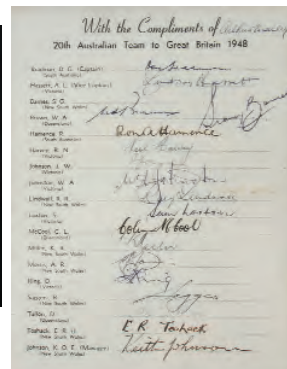 With the Compliments of
20th Australian Team to Great Britain 1948
Bradman, D. G. (Captain)
(South Australia)
Hassett, A. L. (Vice Captain)
(Victoria)
Barnes, S. G.
(New South Wales)
Brown, W. A.
(Queensland)
Hamence, R.
(South Australia)
Ron A Hamence
Harvey, R. N.
(Victoria)
Neil Harvey
Johnson, I. W.
(Victoria)
Johnston, W. A.
(Victoria)
Lindwall, R. R.
(New South Wales)
Loxton, S.
(Victoria)
Sam Loxton
McCool, C. L.
(Queensland)
Colin McCool
Miller, K. R.
(New South Wales)
Morris, A. R.
(New South Wales)
Ring, D.
(Victoria)
Saggers, R.
(New South Wales)
Saggers
Tallon, D.
(Queensland)
Toshack, E. R. H.
(New South Wales)
E. R. Toshack
Johnson, K. O. E. (Manager)
(New South Wales)
Keith Johnson